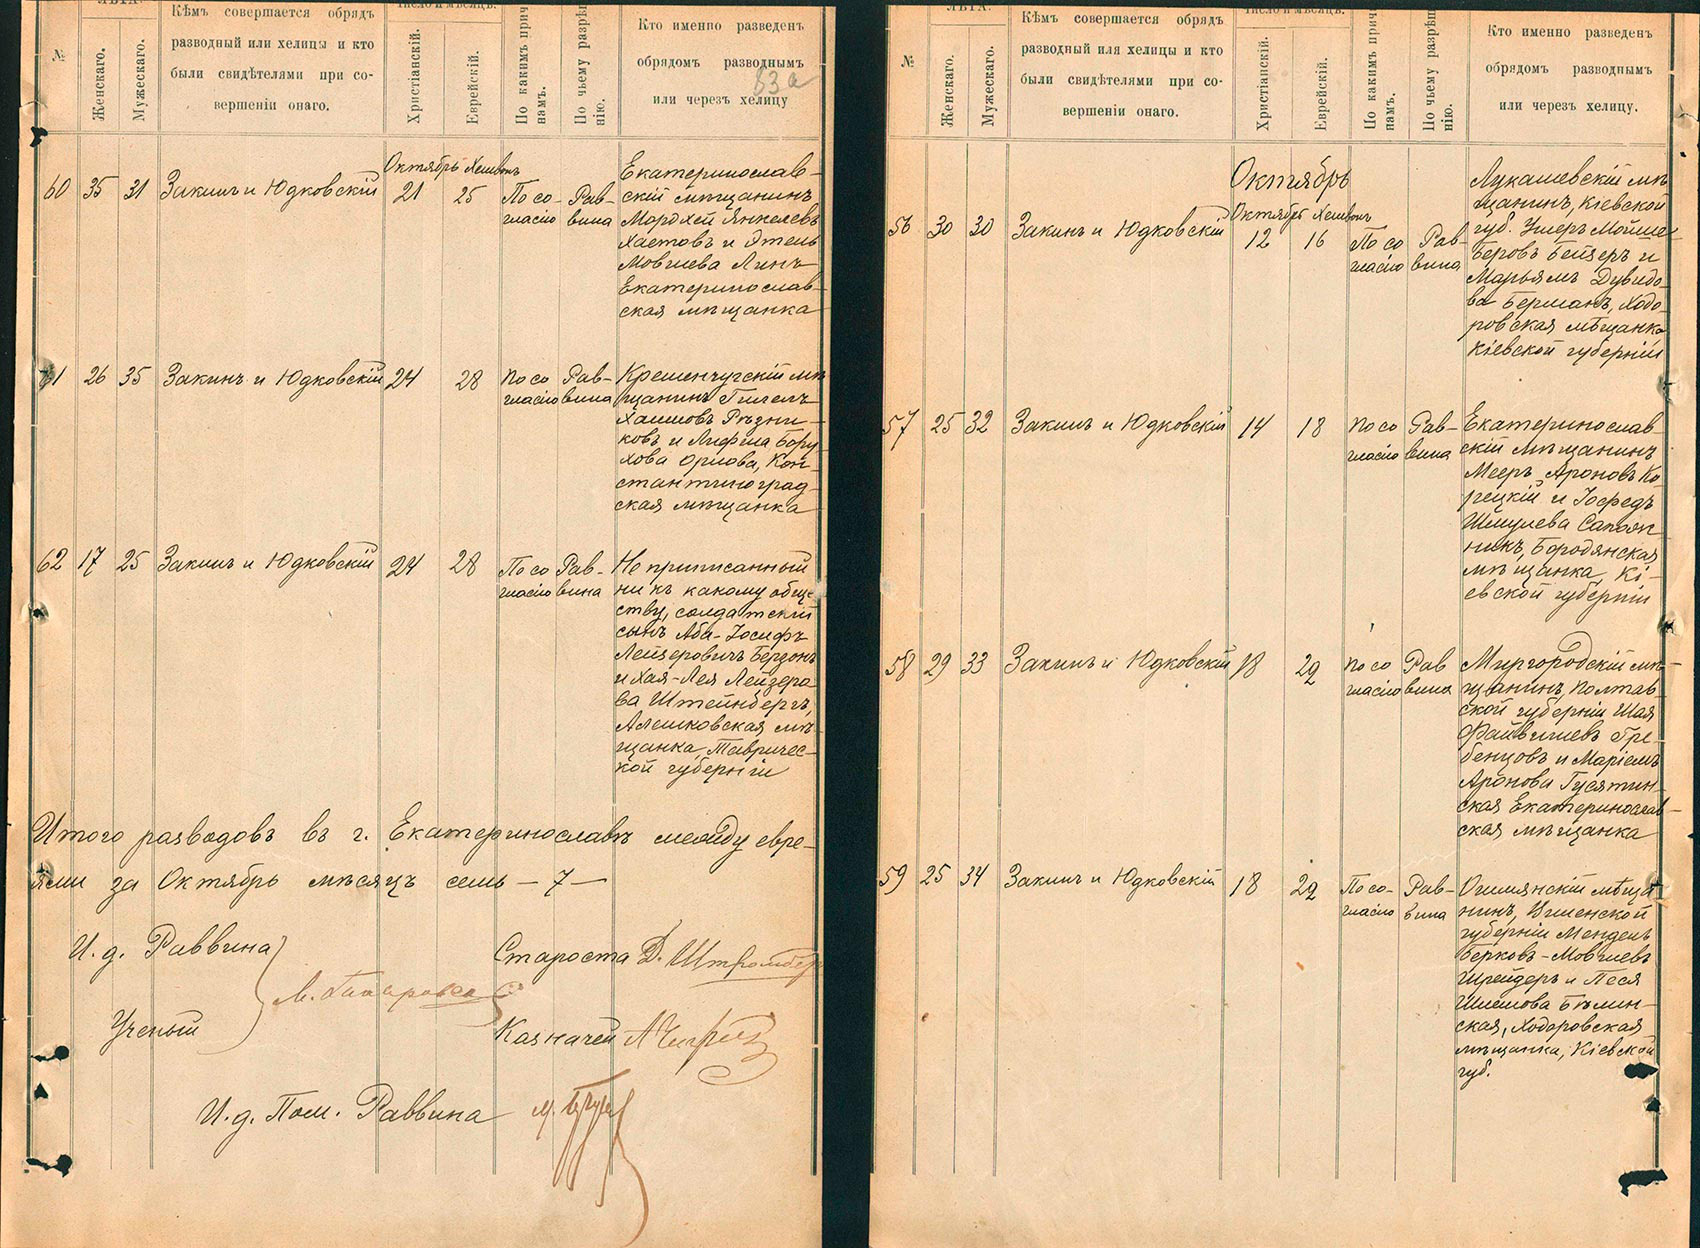 №
Женскаго.
Мужескаго.
Кѣмъ совершается обрядъ
разводный или хелицы и кто
были свидѣтелями при со-
вершеніи онаго.
Христіанскій.
Еврейскій.
По какимъ прич
намъ.
По чьему разрѣ
нію.
Кто именно разведенъ
обрядомъ разводнымъ
или черезъ хелицу
83а
60 35 31 Закинъ и Юдковскій
Октябрь Хешвонъ
21 25
По со-
гласію
Рав-
вина
Екатеринослав-
скій мѣщанинъ
Мордхей Янкелевъ
Хаетовъ и Этель
Мовшева Линъ
Екатеринослав-
ская мѣщанка
61 26 35 Закинъ и Юдковскій 24 28
По со
гласію
Рав-
вина
Кременчугскій мѣ
щанинъ Гилель
Хаимовъ Рѣзни-
ковъ и Лифша Бору
хова Орлова, Кон-
стантиноград-
ская мѣщанка
62 17 25 Закинъ и Юдковскій 24 28
По со
гласію
Рав-
вина
Не приписанный
ни къ какому обще-
ству, солдатскій
сынъ Аба-Іосифъ
Лейзеровичъ
и Хая-Лея Лейзеро
ва Штейнбергъ,
Алешковская мѣ-
щанка, Тавричес-
кой губерніи
Итого разводовъ въ г. Екатеринославѣ между евре-
ями за Октябрь мѣсяцъ семь — 7 —
И. д. Раввина
Ученый
Староста Д. Штромбер
Казначей
И. д. Пом. Раввина
№
Женскаго.
Мужескаго.
Кѣмъ совершается обрядъ
разводный или хелицы и кто
были свидѣтелями при со-
вершеніи онаго.
Христіанскій.
Еврейскій.
По какимъ прич
намъ.
По чьему разрѣш
нію.
Кто именно разведенъ
обрядомъ разводнымъ
или черезъ хелицу.
Октябрь
56 30 30 Закинъ и Юдковскій
Октябрь Хешвонъ
12 16
По со
гласію
Рав-
вина
Лукашевскій мѣ
щанинъ, Кіевской
губ. Ушеръ Мойше-
Беровъ Бейзеръ и
Марьямъ Дувидо-
ва Берманъ, Ходо-
ровская мѣщанка
Кіевской губерніи
57 25 32 Закинъ и Юдковскій 14 18
По со
гласію
Рав-
вина
Екатеринослав-
скій мѣщанинъ
Мееръ Ароновъ Ко-
рецкій и Іосфедъ
Шмулева Сапож
никъ, Бородянская
мѣщанка, Кі-
евской губерніи
58 29 33 Закинъ и Юдковскій 18 22
По со
гласію
Рав
вина
Миргородскій мѣ-
щанинъ, Полтав-
ской губерніи Шая
Файвишевъ Гре-
бенцовъ и Маріемъ
Аронова Гусятин-
ская Екатеринослав-
ская мѣщанка
59 25 34 Закинъ и Юдковскій 18 22
По со-
гласію
Рав-
вина
Ошмянскій мѣща
нинъ, Виленской
губерніи Мендель
Берковъ-Мовшевъ
Шрейдеръ и Песя
Шлемова Бѣлин-
ская, Ходоровская
мѣщанка, Кіевской
губ.